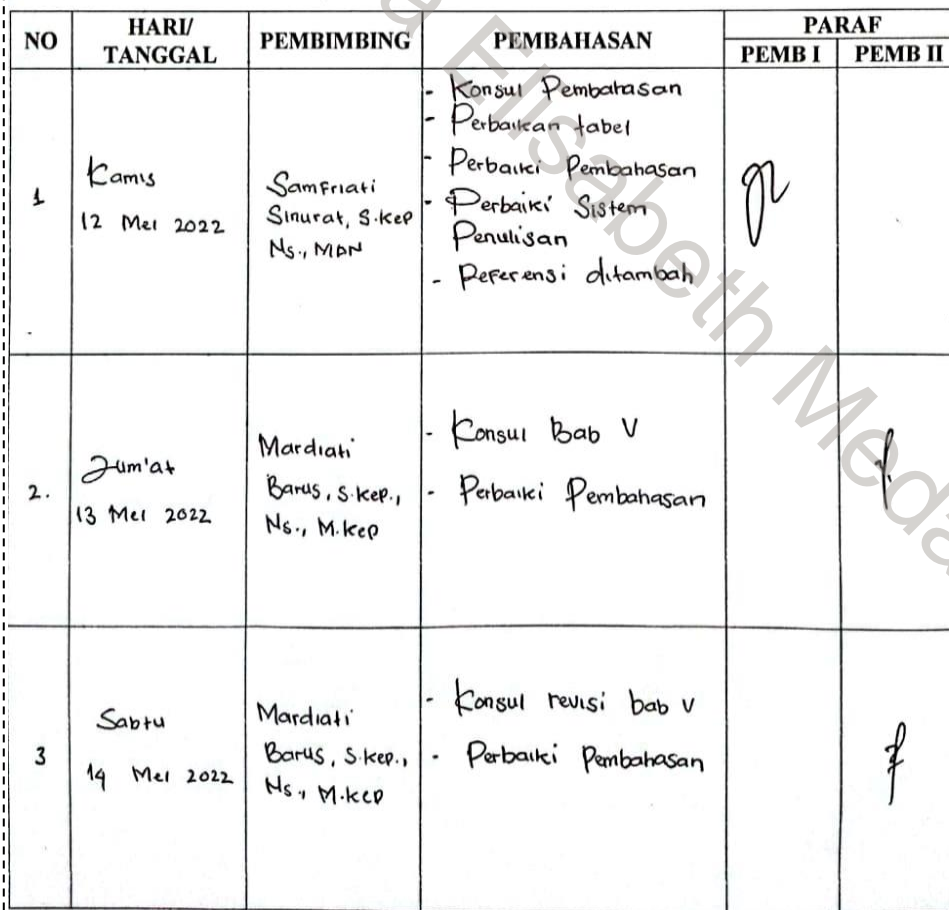 NO
HARI/
TANGGAL
PEMBIMBING
PEMBAHASAN
PARAF
PEMB I
PEMB II
1
Kamis
12 Mei 2022
Samfriati
Sinurat, S.Kep
Ns., MAN
- Konsul Pembahasan
- Perbaikan tabel
- Perbaiki Pembahasan
- Perbaiki Sistem
Penulisan
- Referensi ditambah
2.
Jum'at
13 Mei 2022
Mardiati
Barus, S.Kep.,
Ns., M.Kep
- Konsul Bab V
- Perbaiki Pembahasan
3
Sabtu
14 Mei 2022
Mardiati
Barus, S.Kep.,
Ns., M.Kep
- Konsul revisi bab V
- Perbaiki Pembahasan
a Elisabeth Meda